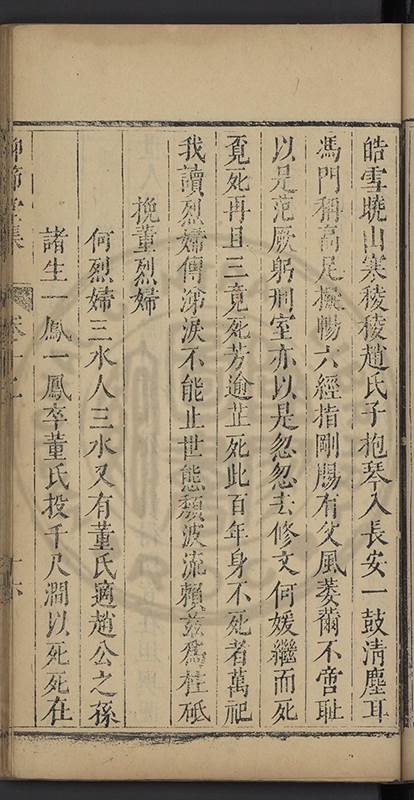 皓雪曉山寒稜稜趙氏子抱琴入長安一鼓清塵耳
馮門稱高足擬暢六經指剛腸有父風萎薾不啻耻
以是范厥躬刑室亦以是忽忽去修文何媛繼而死
覔死再且三竟死芳逾芷死此百年身不死者萬祀
我讀烈婦傳涕淚不能止世態頹波流賴茲爲柱砥
挽董烈婦
何烈婦三水人三水又有董氏適趙公之孫
諸生一鳳一鳳卒董氏投千尺澗以死死在
節堂集
卷十二
十六